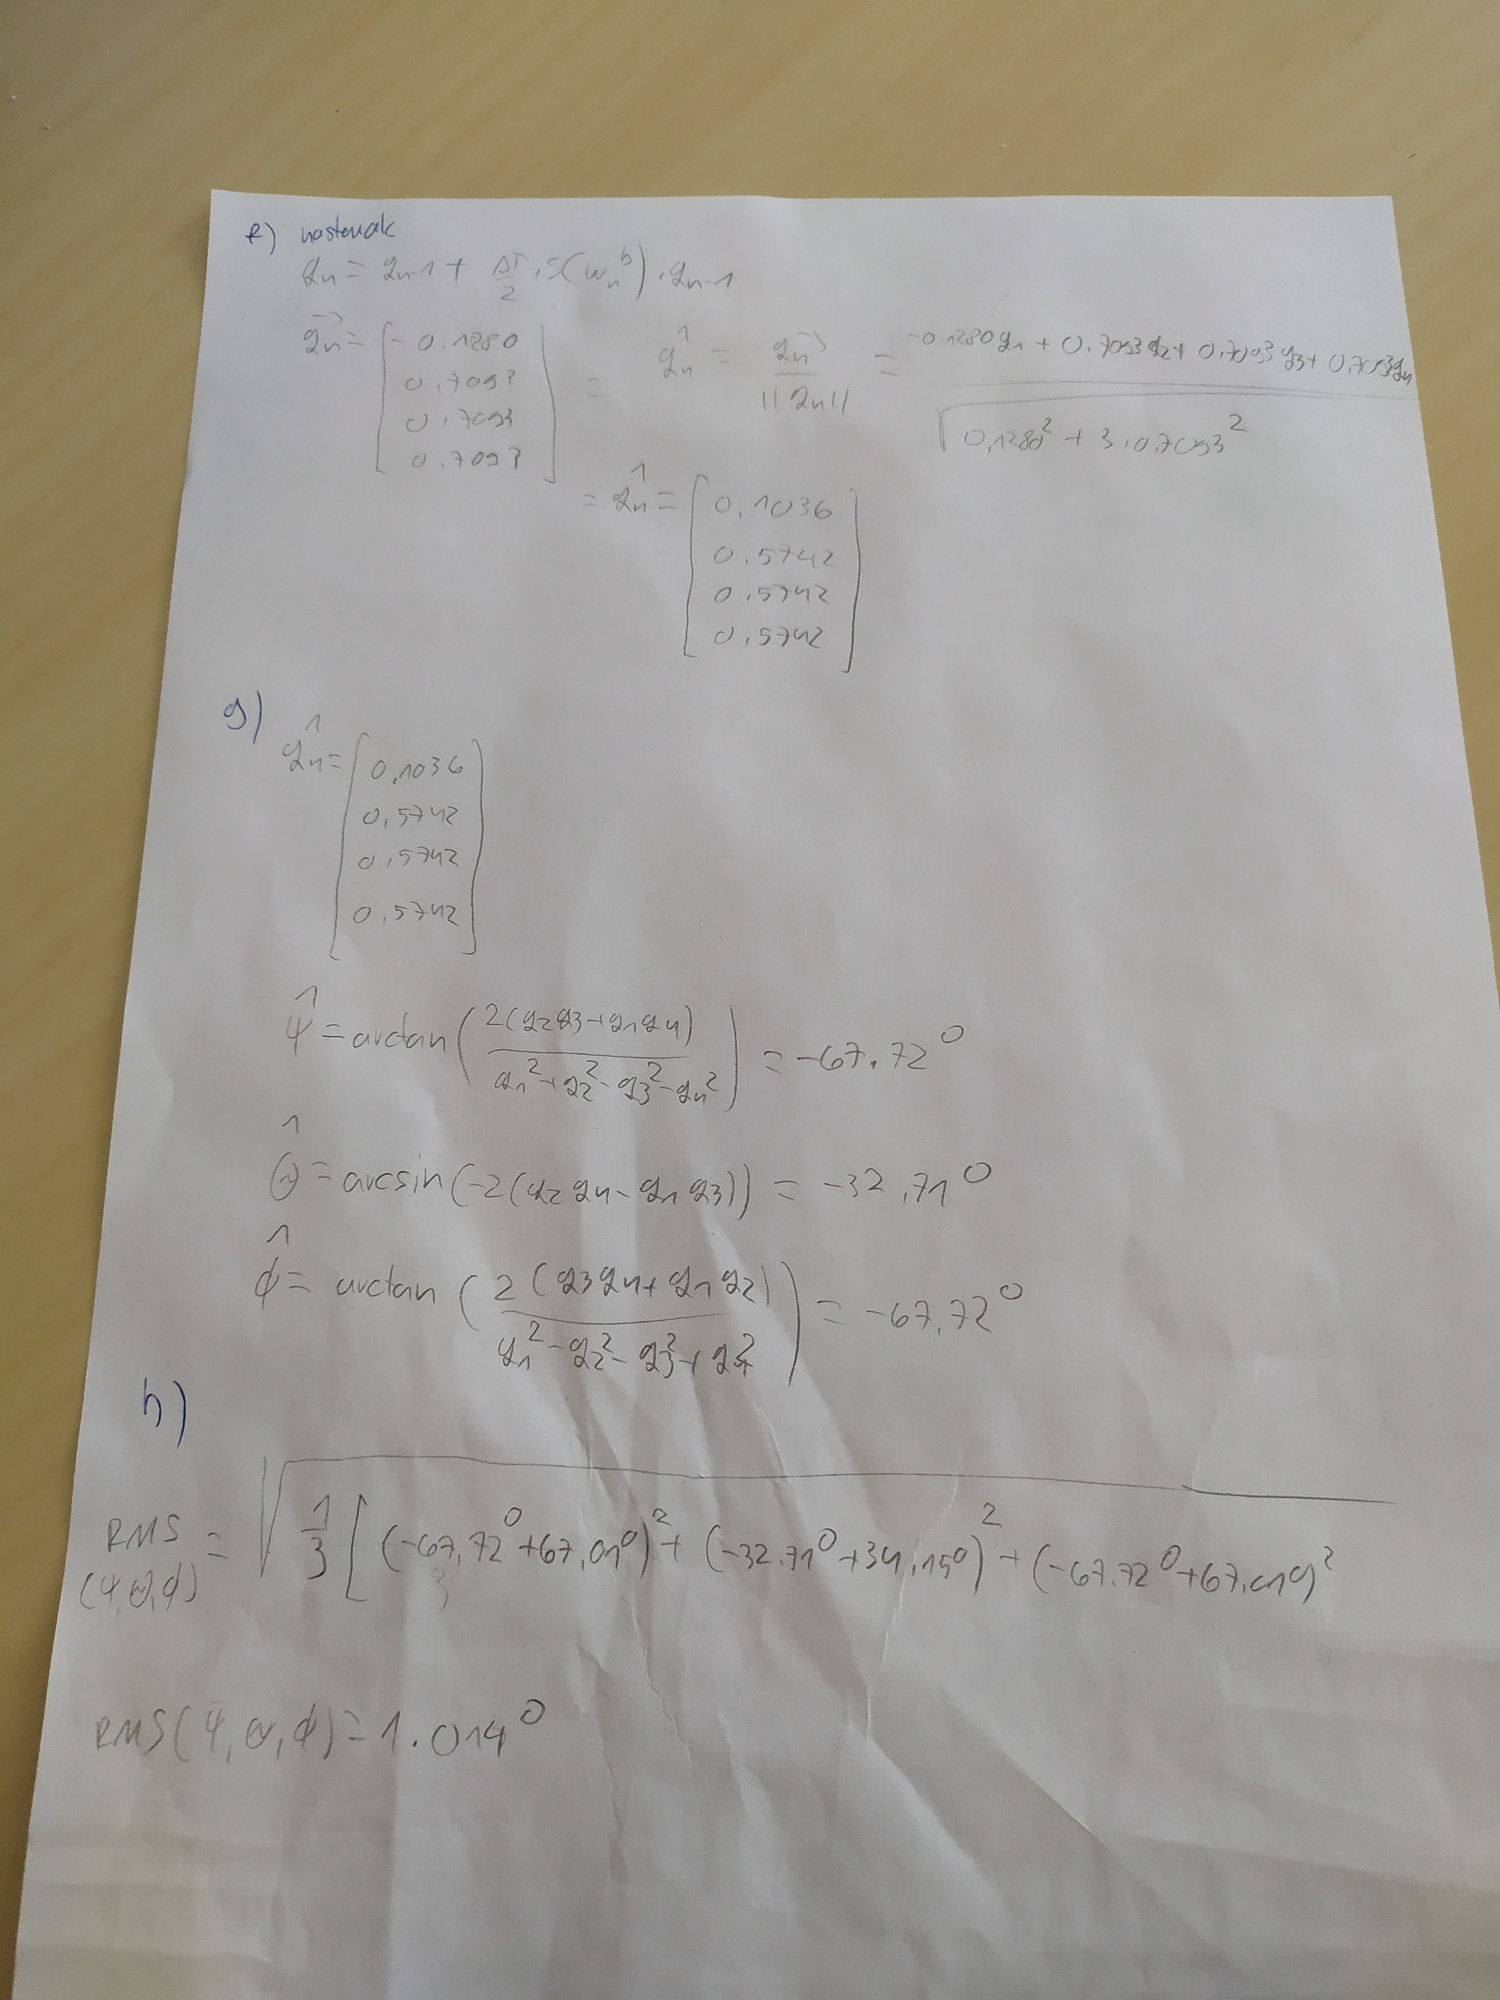 f) nastavak
qn = qn-1 + ΔT/2 · S(ωn^b) · qn-1
qn→ = [-0.1280 0.7093 0.7093 0.7093] = q̂n = qn→/||qn|| = (-0.1280q1 + 0.7093q2 + 0.7093q3 + 0.7093q4) / √(0.1280² + 3·0.7093²)
= q̂n = [0.1036 0.5742 0.5742 0.5742]
g)
q̂n = [0.1036 0.5742 0.5742 0.5742]
ψ̂ = arctan(2(q2q3+q1q4) / (q1²+q2²-q3²-q4²)) = -67.72°
Θ̂ = arcsin(-2(q2q4-q1q3)) = -32.71°
ϕ̂ = arctan(2(q3q4+q1q2) / (q1²-q2²-q3²+q4²)) = -67.72°
h)
RMS (ψ,Θ,ϕ) = √(1/3 [(-67.72°+67.01°)² + (-32.71°+34.15°)² + (-67.72°+67.01°)²
RMS(ψ,Θ,ϕ) = 1.014°